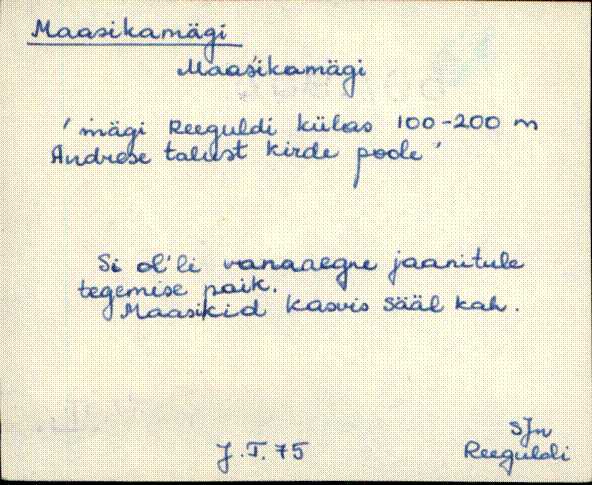 Maasikamägi
Maas'ikamägi
'mägi Reeguldi külas 100-200 m
Andrese talust kirde poole'
Si ol'li vanaaegne jaanitule
tegemise paik.
Maasikid kasvis sääl kah.
SJn
J.T. 75
Reeguldi